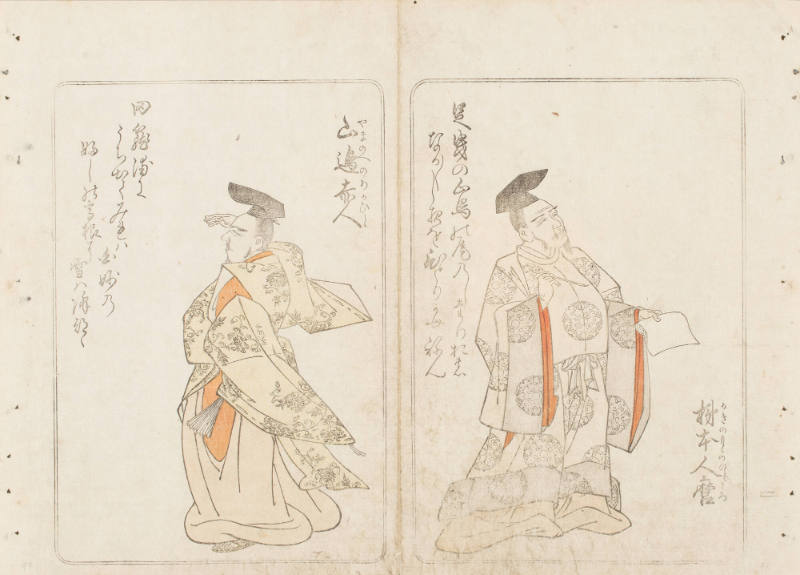 足曳の山鳥の尾乃しだり尾の
なか〳〵し夜をひとりかもねん
かきのもとのひとまろ
柿本人麿
やまのべのあかひと
山邊赤人
田籠浦に
うち出てみれハ
白妙乃
ふしの高根に
雪ハ降つゝ